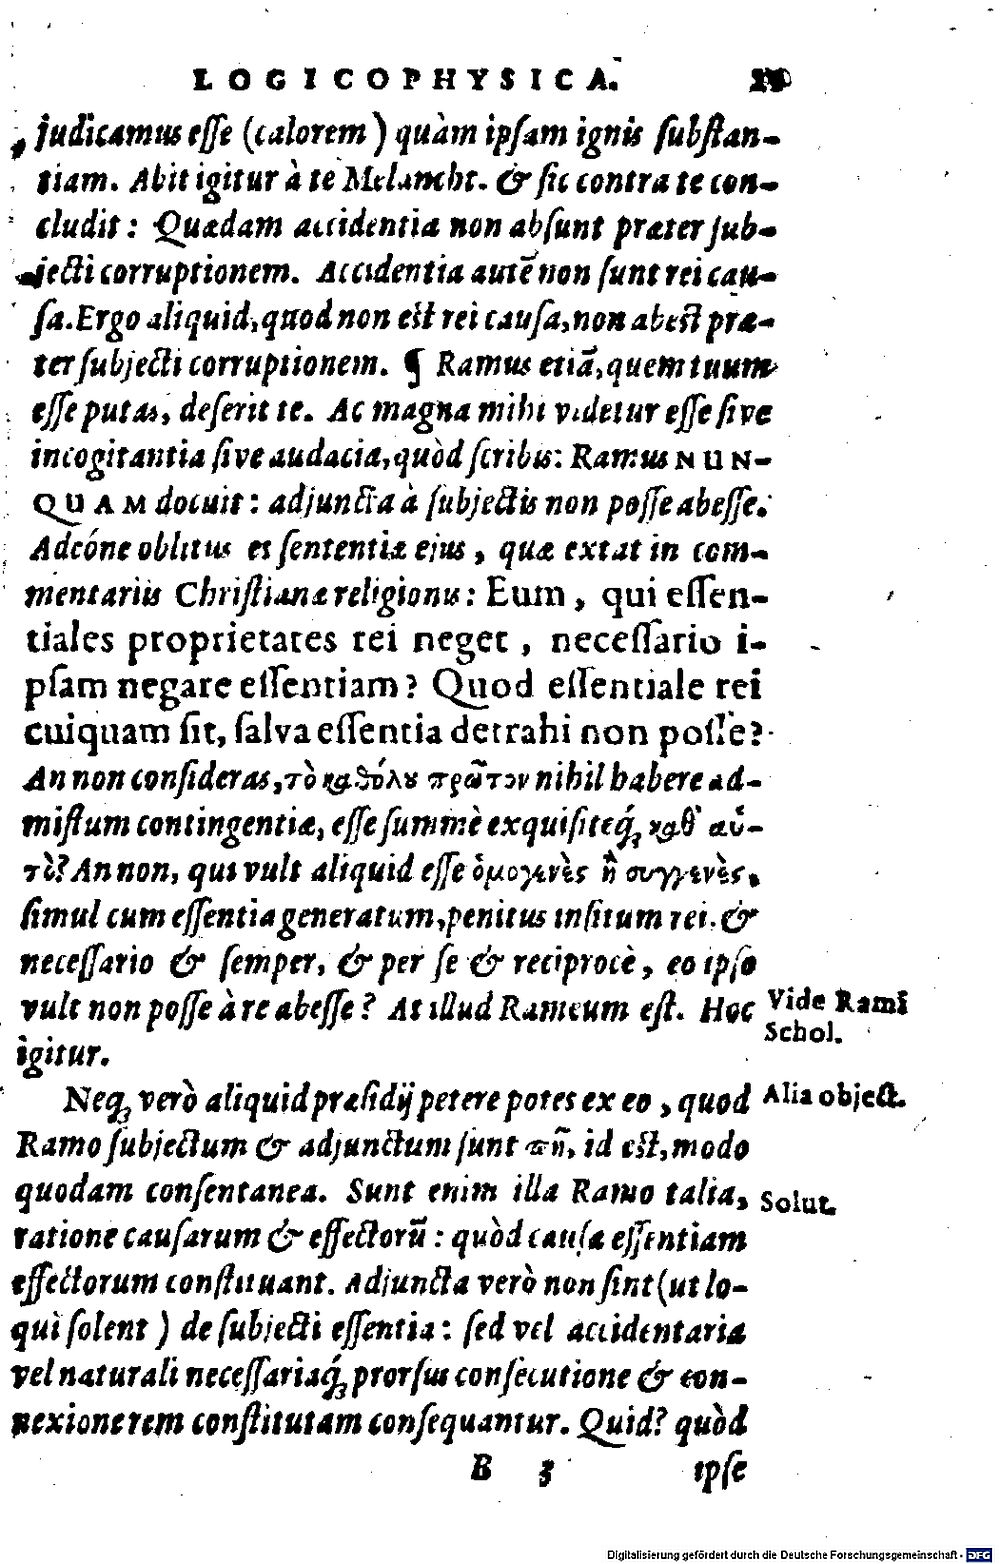 LOGICOPHYSICA.
judicamus esse (calorem) quàm ipsam ignis substan-
tiam. Abit igitur à te Melancht. & sic contra te con-
cludit: Quædam accidentia non absunt præter sub-
jecti corruptionem. Accidentia autẽ non sunt rei cau-
sa. Ergo aliquid, quod non est rei causa, non abest præ-
ter subjecti corruptionem. ¶ Ramus etiã, quem tuum
esse putas, deserit te. Ac magna mihi videtur esse sive
incogitantia sive audacia, quòd scribis: Ramus NUN-
QUAM docuit: adjuncta à subjectis non posse abesse.
Adeóne oblitus es sententiæ ejus, quæ extat in com-
mentariis Christianæ religionis: Eum, qui essen-
tiales proprietates rei neget, necessario i-
psam negare essentiam? Quod essentiale rei
cuiquam sit, salva essentia detrahi non posse?
An non consideras, τὸ καθόλου πρῶτον nihil habere ad-
mistum contingentiæ, esse summè exquisiteq́; καθ' αὑ-
τὸ? An non, qui vult aliquid esse ὁμογενὲς ἢ συγγενὲς,
simul cum essentia generatum, penitus insitum rei, &
necessario & semper, & per se & reciprocè, eo ipso
vult non posse à re abesse? At illud Rameum est. Hoc
igitur.
Vide Rami
Schol.
Neq; verò aliquid præsidij petere potes ex eo, quod
Alia object.
Ramo subjectum & adjunctum sunt πῆ, id est, modo
quodam consentanea. Sunt enim illa Ramo talia,
Solut.
ratione causarum & effectorũ: quòd causæ essentiam
effectorum constituant. Adjuncta verò non sint (ut lo-
qui solent) de subjecti essentia: sed vel accidentaria
vel naturali necessariaq́; prorsus consecutione & con-
nexione rem constitutam consequantur. Quid? quòd
B 3 ipse
Digitalisierung gefördert durch die Deutsche Forschungsgemeinschaft - DFG